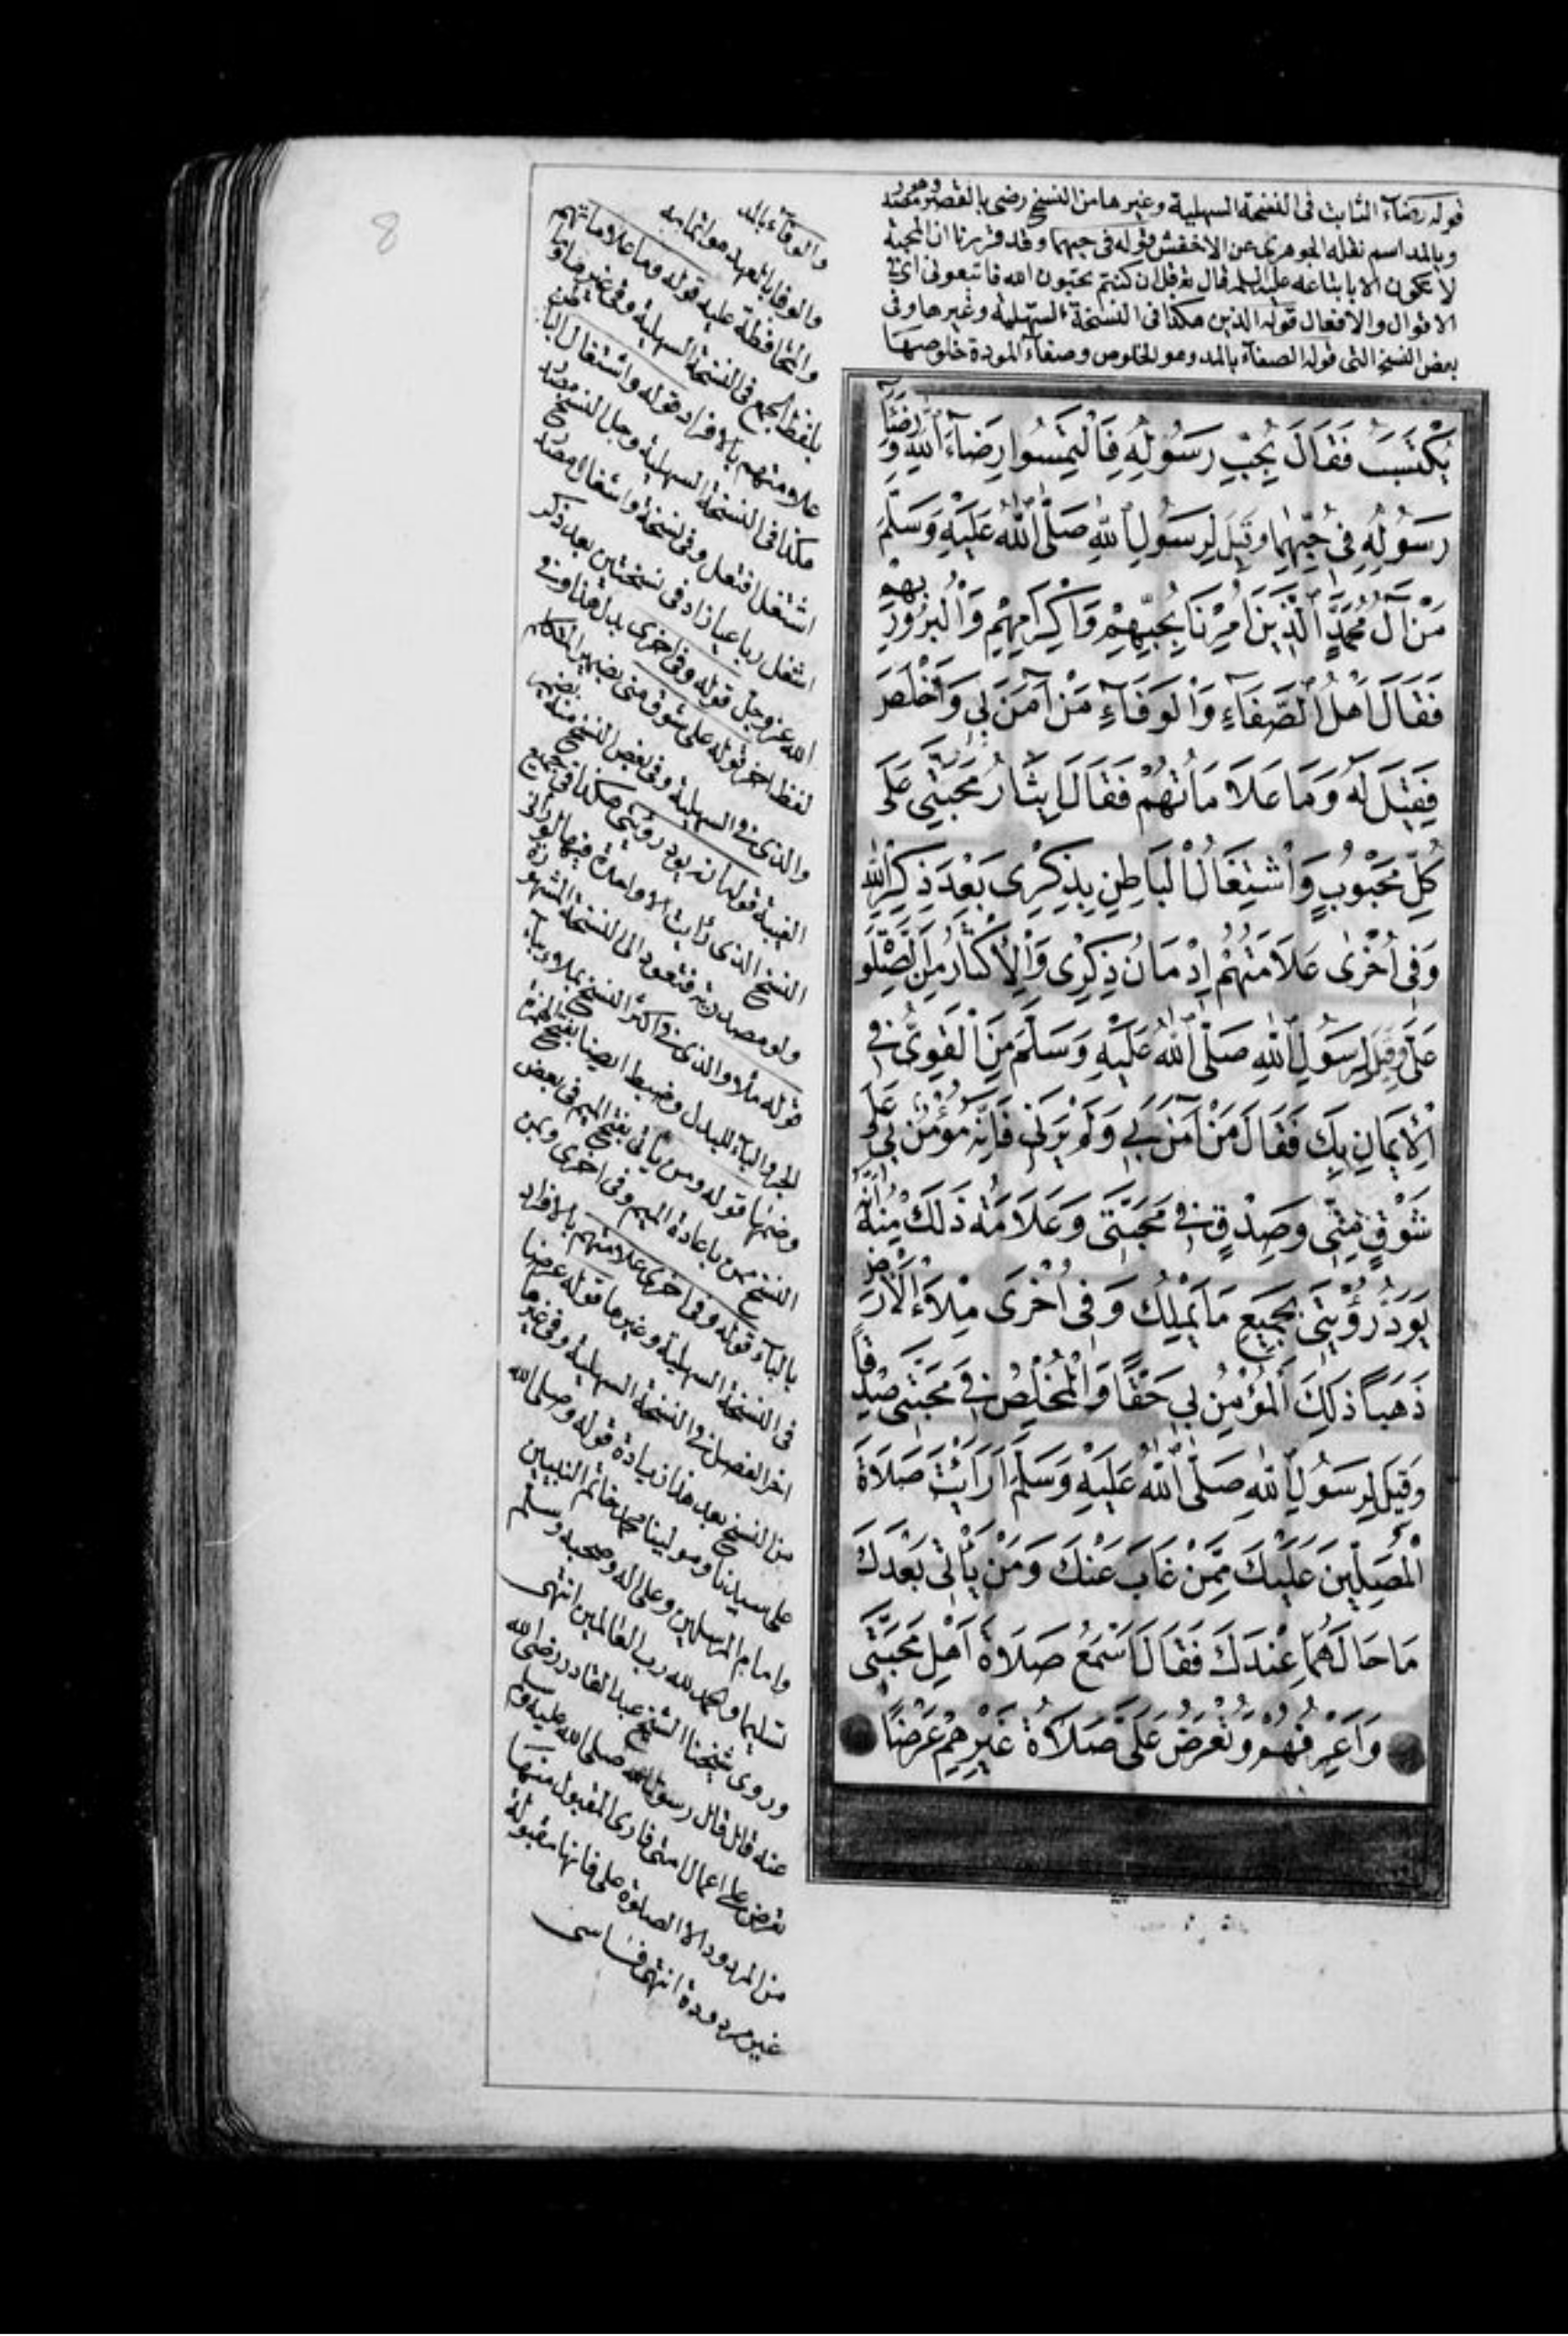 8
قوله رضآء الثابت فى النسخة السهلية وغيرها من النسخ رضى بالقصر وهو مصدر
وبالمد اسم نقله الجوهرى عن الاخفش قوله فى حبهما وقد قررنا ان المحبة
لا تكون الا باتباعه عليه السلم قال تع قل ان كنتم تحبون الله فاتبعونى اى فى
الاقوال والافعال قوله الذين هكذا فى النسخة السهلية وغيرها وفى
بعض النسخ التى قوله الصفآء بالمد وهو الخلوص وصفآء المودة خلوصها
يُكْتَسَبُ فَقَالَ بِحُبِّ رَسُولِهِ فَالْتَمِسُوا رِضَآءَ اللهِ وَرِضَآءَ
رَسُولِهِ فِى حُبِّهِمَا وَقِيلَ لِرَسُولِ اللهِ صَلَّى اللهُ عَلَيْهِ وَسَلَّمَ
مَنْ آلُ مُحَمَّدٍ الَّذِينَ أُمِرْنَا بِحُبِّهِمْ وَاِكْرَامِهِمْ وَالْبُرُورِ بِهِمْ
فَقَالَ اَهْلُ الصَّفَآءِ وَالْوَفَآءِ مَنْ آمَنَ بِى وَاَخْلَصَ
فَقِيلَ لَهُ وَمَا عَلَامَاتُهُمْ فَقَالَ اِيثَارُ مَحَبَّتِى عَلَى
كُلِّ مَحْبُوبٍ وَاشْتِغَالُ الْبَاطِنِ بِذِكْرِى بَعْدَ ذِكْرِ اللهِ
وَفِى اُخْرٰى عَلَامَتُهُمْ اِدْمَانُ ذِكْرِى وَالْاِكْثَارُ مِنَ الصَّلٰوةِ
عَلَىَّ وَقِيلَ لِرَسُولِ اللهِ صَلَّى اللهُ عَلَيْهِ وَسَلَّمَ مَنِ الْقَوِىُّ فِى
الْاِيمَانِ بِكَ فَقَالَ مَنْ آمَنَ بِى وَلَمْ يَرَنِى فَاِنَّهُ مُؤْمِنٌ بِى عَلَى
شَوْقٍ مِنِّى وَصِدْقٍ فِى مَحَبَّتِى وَعَلَامَةُ ذٰلِكَ مِنْهُ اَنَّهُ
يَوَدُّ رُؤْيَتِى بِجَمِيعِ مَا يَمْلِكُ وَفِى اُخْرَى مِلْاَءَ الْاَرْضِ
ذَهَبًا ذٰلِكَ الْمُؤْمِنُ بِى حَقًّا وَالْمُخْلِصُ فِى مَحَبَّتِى صِدْقًا
وَقِيلَ لِرَسُولِ اللهِ صَلَّى اللهُ عَلَيْهِ وَسَلَّمَ اَرَاَيْتَ صَلَاةَ
الْمُصَلِّينَ عَلَيْكَ مِمَّنْ غَابَ عَنْكَ وَمَنْ يَأْتِى بَعْدَكَ
مَا حَالُهُمَا عِنْدَكَ فَقَالَ اَسْمَعُ صَلَاةَ اَهْلِ مَحَبَّتِى
وَاَعْرِفُهُمْ وَتُعْرَضُ عَلَىَّ صَلَاةُ غَيْرِهِمْ عَرْضًا
والوفآء بالمد
والوفا بالعهد هو اتمامه
والمحافظة عليه قوله وما علاماتهم
بلفظ الجمع فى النسخة السهلية وفى غيرها وما
علامتهم بالافراد قوله واشتغال الباطن
هكذا فى النسخة السهلية وجل النسخ مصدر
اشتغل افتعل وفى نسخة واشغال مصدر
اشغل رباعيا زاد فى نسختين بعد ذكر
الله عز وجل قوله وفى اخرى بدل هذا وفى
لفظ اخر قوله على شوق منى بضمير المتكلم
والذى فى السهلية وفى بعض النسخ منه بضمير
الغيبة قوله انه يود رؤيتى هكذا فى جميع
النسخ الذى رأيت الا واحدة فيها لو رآنى
ولو مصدرية فتعود الى النسخة المشهورة
قوله ملأ والذى فى اكثر النسخ بملأ وبباء
الجر والبآء للبدل وضبط ايضا بفتح الهمزة
وضمها قوله ومن يأتى بفتح الميم فى بعض
النسخ من باعادة الميم وفى اخرى وبمن
بالبآء قوله وفى اخرى علامتهم بالافراد
فى النسخة السهلية وغيرها قوله عرضا
اخر الفصل فى النسخة السهلية وفى غيرها
من النسخ بعد هذا زيادة قوله وصلى الله
على سيدنا ومولينا محمد خاتم النبيين
وامام المرسلين وعلى اله وصحبه وسلم
تسليما والحمد لله رب العالمين انتهى
وروى شيخنا الشيخ عبد القادر رضى الله
عنه قال قال رسول الله صلى الله عليه وسلم
تعرض على اعمال امتى فارى المقبول منها
من المردود الا الصلوة على فانها مقبولة
غير مردودة انتهى فاسى